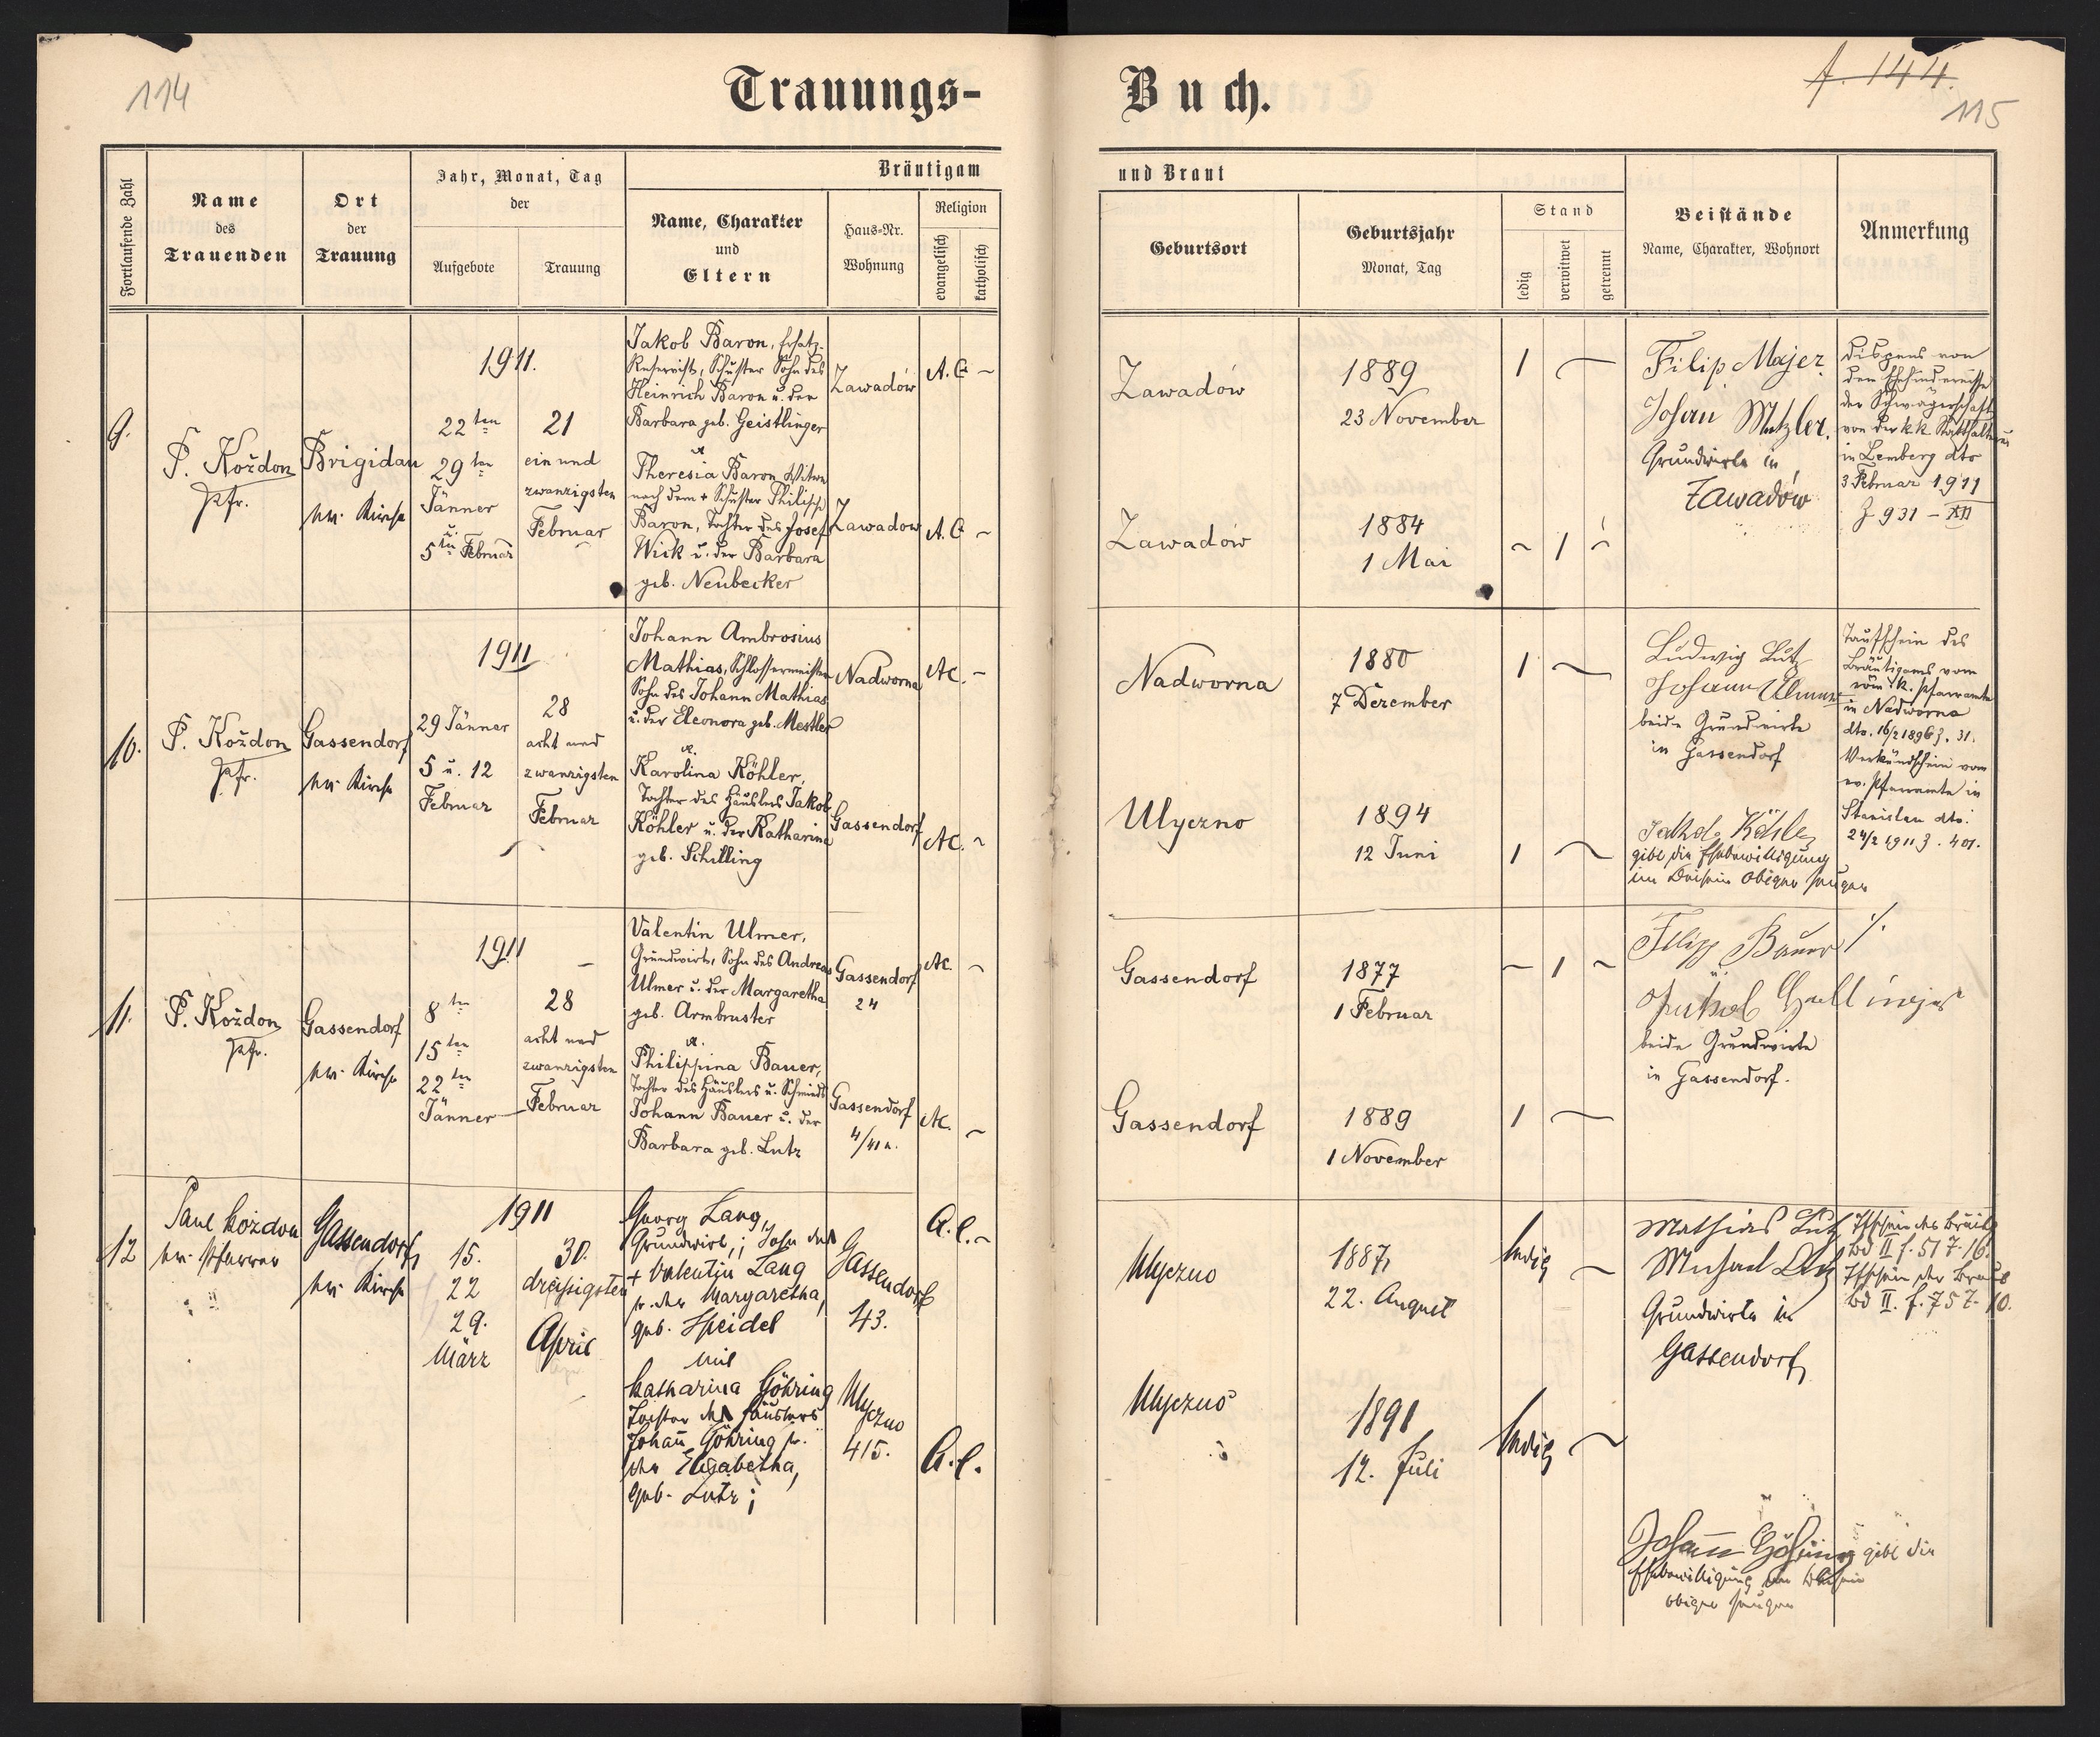 114
Trauungs-
Buch.
f. 144.
115
Fortlaufende Zahl
Name
des
Trauenden
Ort
der
Trauung
Jahr, Monat, Tag
der
Aufgebote
Trauung
Bräutigam
Name, Charakter
und
Eltern
Haus-Nr.
Wohnung
Religion
evangelisch
katholisch
und Braut
Geburtsort
Geburtsjahr
Monat, Tag
Stand
ledig
verwitwet
getrennt
Beistände
Name, Charakter, Wohnort
Anmerkung
9.
P. Koždon
Pfr.
Brigidau
ev. Kirche
1911.
22ten
29ten
Jänner
u.
5ten Februar
21
ein und
zwanzigsten
Februar
Jakob Baron, Ersatz-
Reservist, Schuster Sohn des
Heinrich Baron u. der
Barbara geb. Geistlinger
u.
Theresia Baron Witwe
nach dem + Schuster Philipp
Baron, Tochter des Josef
Wick u. der Barbara
geb. Neubecker
Zawadów
Zawadow
A. C -
A. C -
Zawadów
Zawadów
1889
23 November
1884
1 Mai
1
- 1 -
Filip Majer
Johan Metzler.
Grundwirte in
Zawadów
Dispens von
dem Ehehindernisse
der Schwägerschaft
von der k.k. Statthalterei
in Lemberg dto
3 Februar 1911
Z 931 - XII
10.
P. Koždon
Pfr.
Gassendorf
ev. Kirche
1911
29 Jänner
5 u. 12
Februar
28
acht und
zwanzigsten
Februar
Johann Ambrosius
Mathias, Schlossermeister
Sohn des Johann Mathias
u. der Eleonora geb. Mestler
u.
Karolina Köhler,
Tochter des Häuslers Jakob
Köhler u. der Katharina
geb. Schilling
Nadworna
Gassendorf
AC. -
AC. -
Nadworna
Ulyczno
1880
7 Dezember
1894
12 Juni
1
1
Ludwig Lutz
Johann Ulmer
beide Grundwirte
in Gassendorf
Köhler
gibt die Ehebewilligung
im Beisein obiger Zeugen
Taufschein des
Bräutigams vom
röm. k. Pfarramte
in Nadworna
dto. 16/2 1896 Z. 31.
Verkündschein vom
ev. Pfarramte in
Stanislau dto.
24/2 1911 Z. 401.
11.
P. Koždon
Pfr.
Gassendorf
ev. Kirche
1911
8ten
15ten
22ten
Jänner
28
acht und
zwanzigsten
Februar
Valentin Ulmer,
Grundwirt, Sohn des Andreas
Ulmer u. der Margaretha
geb. Armbruster
u.
Philippina Bauer,
Tochter des Häuslers u. Schmieds
Johann Bauer u. der
Barbara geb. Lutz
Gassendorf
24
Gassendorf
4/41 a.
AC. -
AC. -
Gassendorf
Gassendorf
1877
1 Februar
1889
1 November
- 1 -
1
Filipp Bauer
beide Grundwirte
in Gassendorf.
12
Paul Kozdon
ev. Pfarrer
Gassendorf
ev. Kirche
1911
15.
22
29.
März
30.
dreisigsten
April
Georg Lang,
Grundwirt, ; Sohn des
+ Valentin Lang
u. der Margaretha,
geb. Speidel
mit
Katharina Göhring
Tochter des Häuslers
Johañ Göhring u.
der Elisabetha,
geb. Lutz ;
Gassendorf
43.
Ulyczno
415.
A.C. -
A.C.
Ulyczno
Ulyczno
1887,
22. August
1891
12. Juli
ledig
ledig
Mathias Lutz
Michael Lutz
Grundwirte in
Gassendorf
Johañ Göhring gibt die
Ehebewilligung im Beisein
obiger Zeugen
Tfschein des Bräutg
Bd II f. 51 Z. 16.
Tfschein der Braut
Bd II. f. 75 Z. 10.